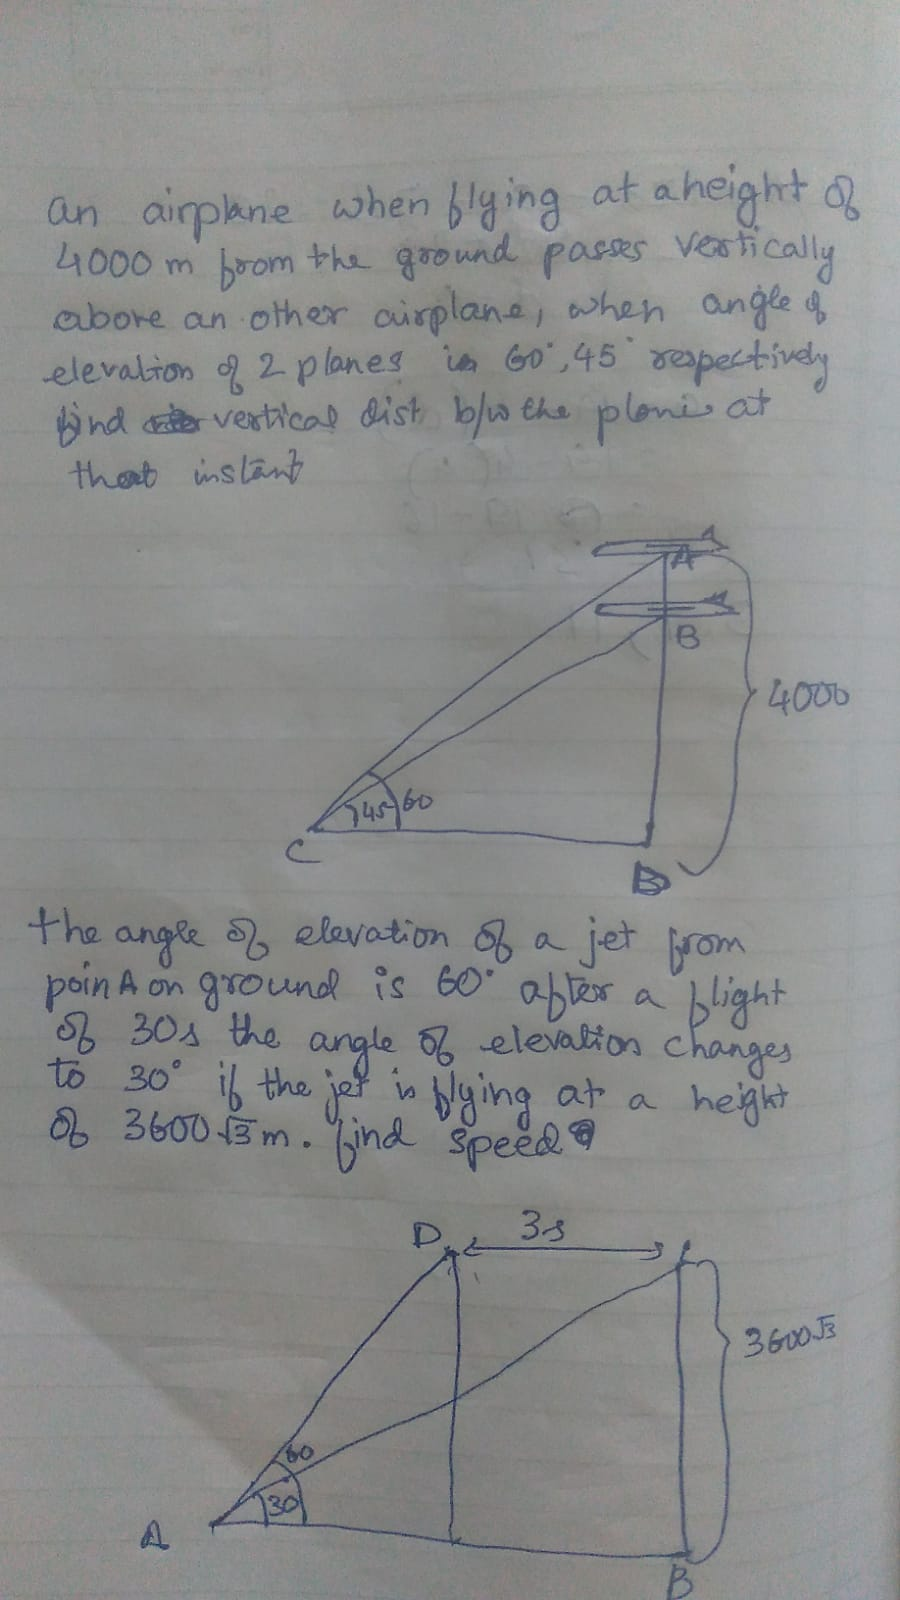 an airplane when flying at a height of
4000 m from the ground passes vertically
above an other airplane, when angle of
elevation of 2 planes is 60°, 45° respectively
find vertical dist b/w the planes at
that instant
A
B
4000
45 60
C
D
the angle of elevation of a jet from
poin A on ground is 60° after a flight
of 30s the angle of elevation changes
to 30° if the jet is flying at a height
of 3600√3 m. find speed
D 3s
3600√3
60
30
A
B